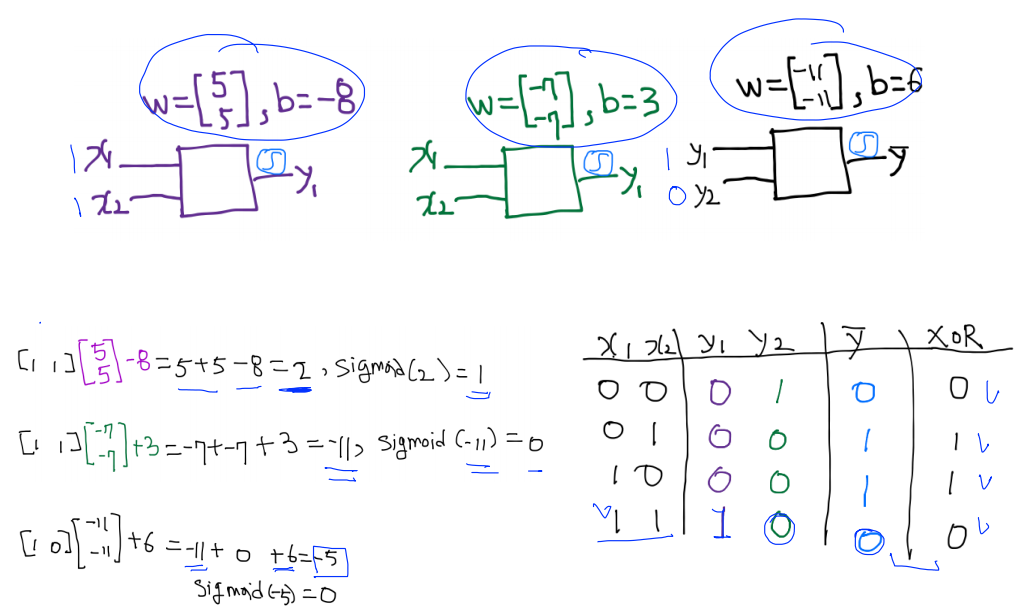 w=[5 5], b=-8
w=[-7 -7], b=3
w=[-11 -11], b=6
1 x1
1 x2
S
y1
x1
x2
S
y1
1 y1
0 y2
S
y̅
[1 1][5 5]-8=5+5-8=2, sigmoid(2)=1
[1 1][-7 -7]+3=-7+-7+3=-11, sigmoid(-11)=0
[1 0][-11 -11]+6=-11+0+6=-5
sigmoid(-5)=0
x1 x2 y1 y2 y̅ XOR
0 0 0 1 0 0 v
0 1 0 0 1 1 v
1 0 0 0 1 1 v
v 1 1 1 0 0 0 v